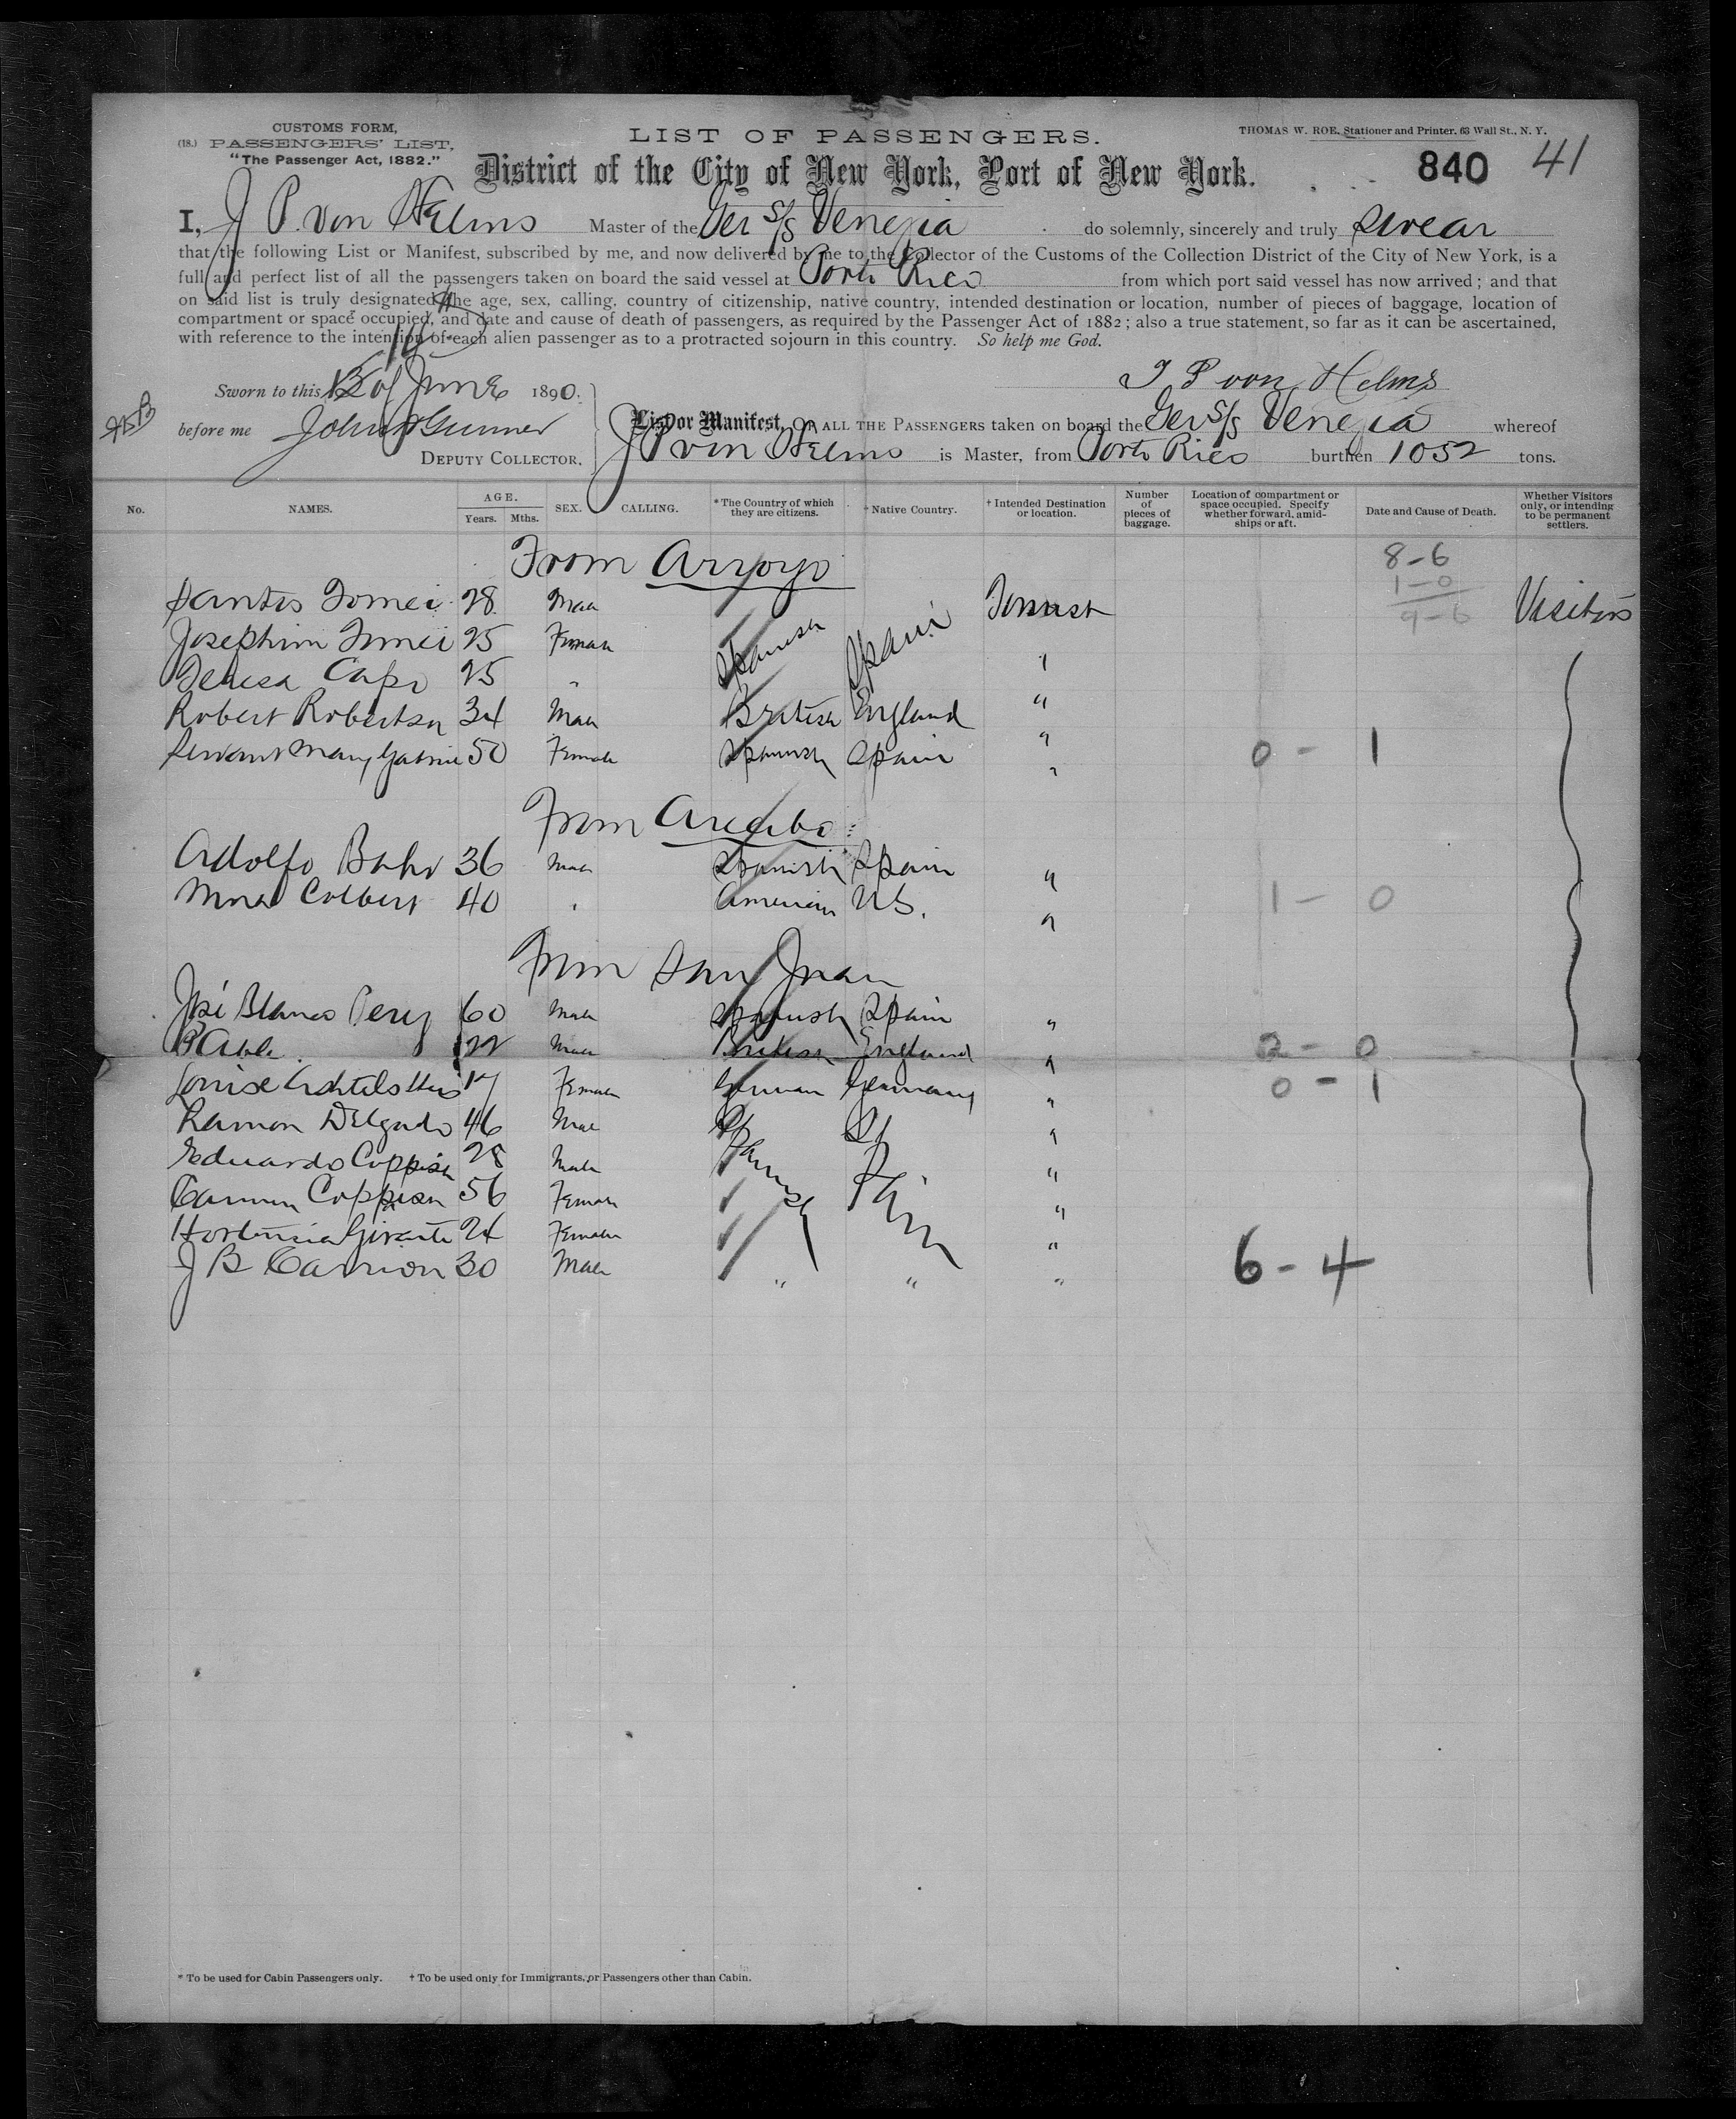 CUSTOMS FORM,
(18.) PASSENGERS' LIST,
"The Passenger Act, 1882."
LIST OF PASSENGERS.
THOMAS W. ROE, Stationer and Printer, 63 Wall St., N. Y.
District of the City of New York, Port of New York.
840 41
I, J P. von Helms Master of the Ger S/S Venezia do solemnly, sincerely and truly swear
that the following List or Manifest, subscribed by me, and now delivered by me to the Collector of the Customs of the Collection District of the City of New York, is a
full and perfect list of all the passengers taken on board the said vessel at Porto Rico from which port said vessel has now arrived; and that
on said list is truly designated the age, sex, calling, country of citizenship, native country, intended destination or location, number of pieces of baggage, location of
compartment or space occupied, and date and cause of death of passengers, as required by the Passenger Act of 1882; also a true statement, so far as it can be ascertained,
with reference to the intention of each alien passenger as to a protracted sojourn in this country. So help me God.
J P von Helms
Sworn to this of June 1890.
before me John Gunner
DEPUTY COLLECTOR.
List or Manifest, OF ALL THE PASSENGERS taken on board the Ger S/S Venezia whereof
J P von Helms is Master, from Porto Rico burthen 1052 tons.
No. NAMES. AGE. Years. Mths. SEX. CALLING. *The Country of which they are citizens. Native Country. † Intended Destination or location. Number of pieces of baggage. Location of compartment or space occupied. Specify whether forward, amidships or aft. Date and Cause of Death. Whether Visitors only, or intending to be permanent settlers.
From Arroyo
8-6
1-0
9-6
Santos Tomei 28 Male Spanish Spain Tourist Visitors
Josephine Tomei 25 Female "
Teresa Capo 25 " "
Robert Robertson 34 Male British England "
Servant Mary 50 Female Spanish Spain " 0 - 1
From Arecibo
Adolfo Bahr 36 Male Spanish Spain "
Colbert 40 " American U.S. " 1 - 0
From San Juan
José Blanco Perez 60 Male Spanish Spain "
22 Male British England " 2 - 0
Louise 17 Female German Germany " 0 - 1
Ramon Delgado 46 Male Spanish Spain "
Eduardo 28 Male "
Carmen 56 Female "
Hortensia 24 Female "
J B Carrion 30 Male " " " 6 - 4
* To be used for Cabin Passengers only. † To be used only for Immigrants, or Passengers other than Cabin.